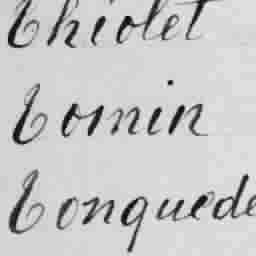 Thiolet
Tomin
Tonquede